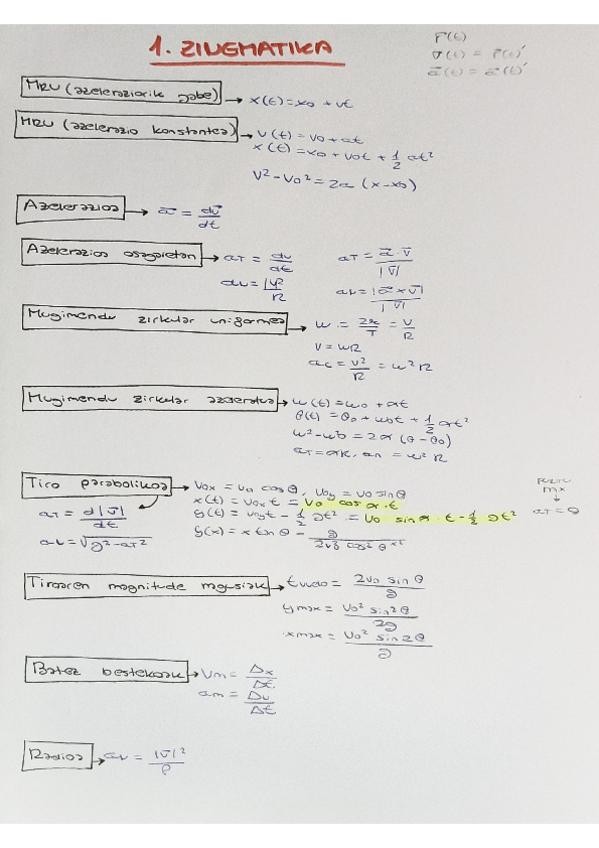 1. ZINEMATIKA
r⃗(t)
v⃗(t) = r⃗(t)'
a⃗(t) = v⃗(t)'
MRU (azeleraziorik gabe) → x(t)=x0 + vt
MRU (azelerazio konstantea) → v(t)=v0+at
x(t)=x0 + v0t + 1/2 at²
v²-v0²=2a (x-x0)
Azelerazioa → a⃗ = dv⃗/dt
Azelerazioa osagaietan → aT = dv/dt    aT = a⃗·v⃗/|v⃗|
aN = |v|²/R    aN = |a⃗ x v⃗|/|v⃗|
Mugimendu zirkular uniformea → w = 2π/T = v/R
v = wR
ac = v²/R = w²R
Mugimendu zirkular azeleratua → w(t)=w0 + αt
θ(t) = θ0 + w0t + 1/2 αt²
w²-w0² = 2α (θ-θ0)
aT=αR, an = w²R
Tiro parabolikoa → v0x = v0 cos θ, v0y = v0 sin θ
x(t) = v0x t = v0 cos α·t
y(t) = v0y t - 1/2 gt² = v0 sin α·t - 1/2 gt²
y(x) = x tan θ - g/2v0² cos² θ x²
aT = d|v⃗|/dt
aN = √g²-aT²
mx
↓
aT = 0
Tiroaren magnitude → t vuelo = 2v0 sin θ/g
y max = v0² sin² θ/2g
x max = v0² sin 2θ/g
Batez bestekoak → vm = Δx/Δt
am = Δv/Δt
Radioa → aN = |v⃗|²/ρ